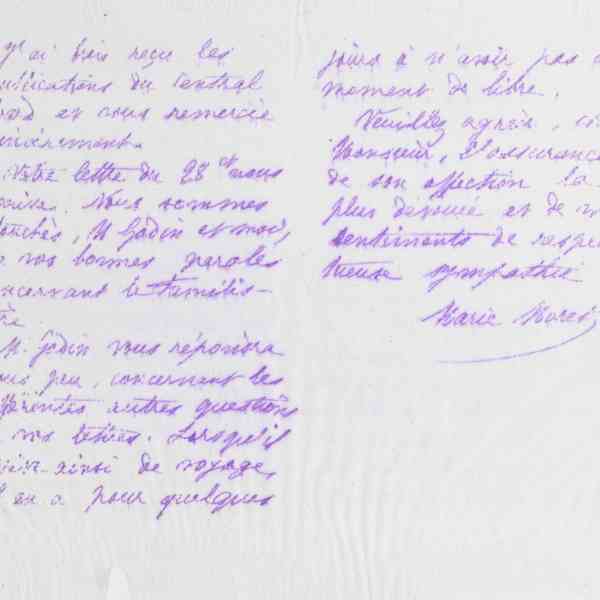 J'ai bien reçu les
ublications du Central
et vous remercie
incèrement.
Votre lettre du 28 ct nous
arrive. Nous sommes
touchés, M. Godin et moi,
vos bonnes paroles
oncernant le Familis-
tère.
M. Godin vous répondra
sous peu, concernant les
fférentes autres questions
vos lettres. Lorsqu'il
ainsi de voyage,
il en a pour quelques
jours à n'avoir pas
moment de libre.
Veuillez agréer,
Monsieur, l'assurance
de son affection la
plus dévouée et de
sentiments de respec
tueuse sympathie
Marie Moret